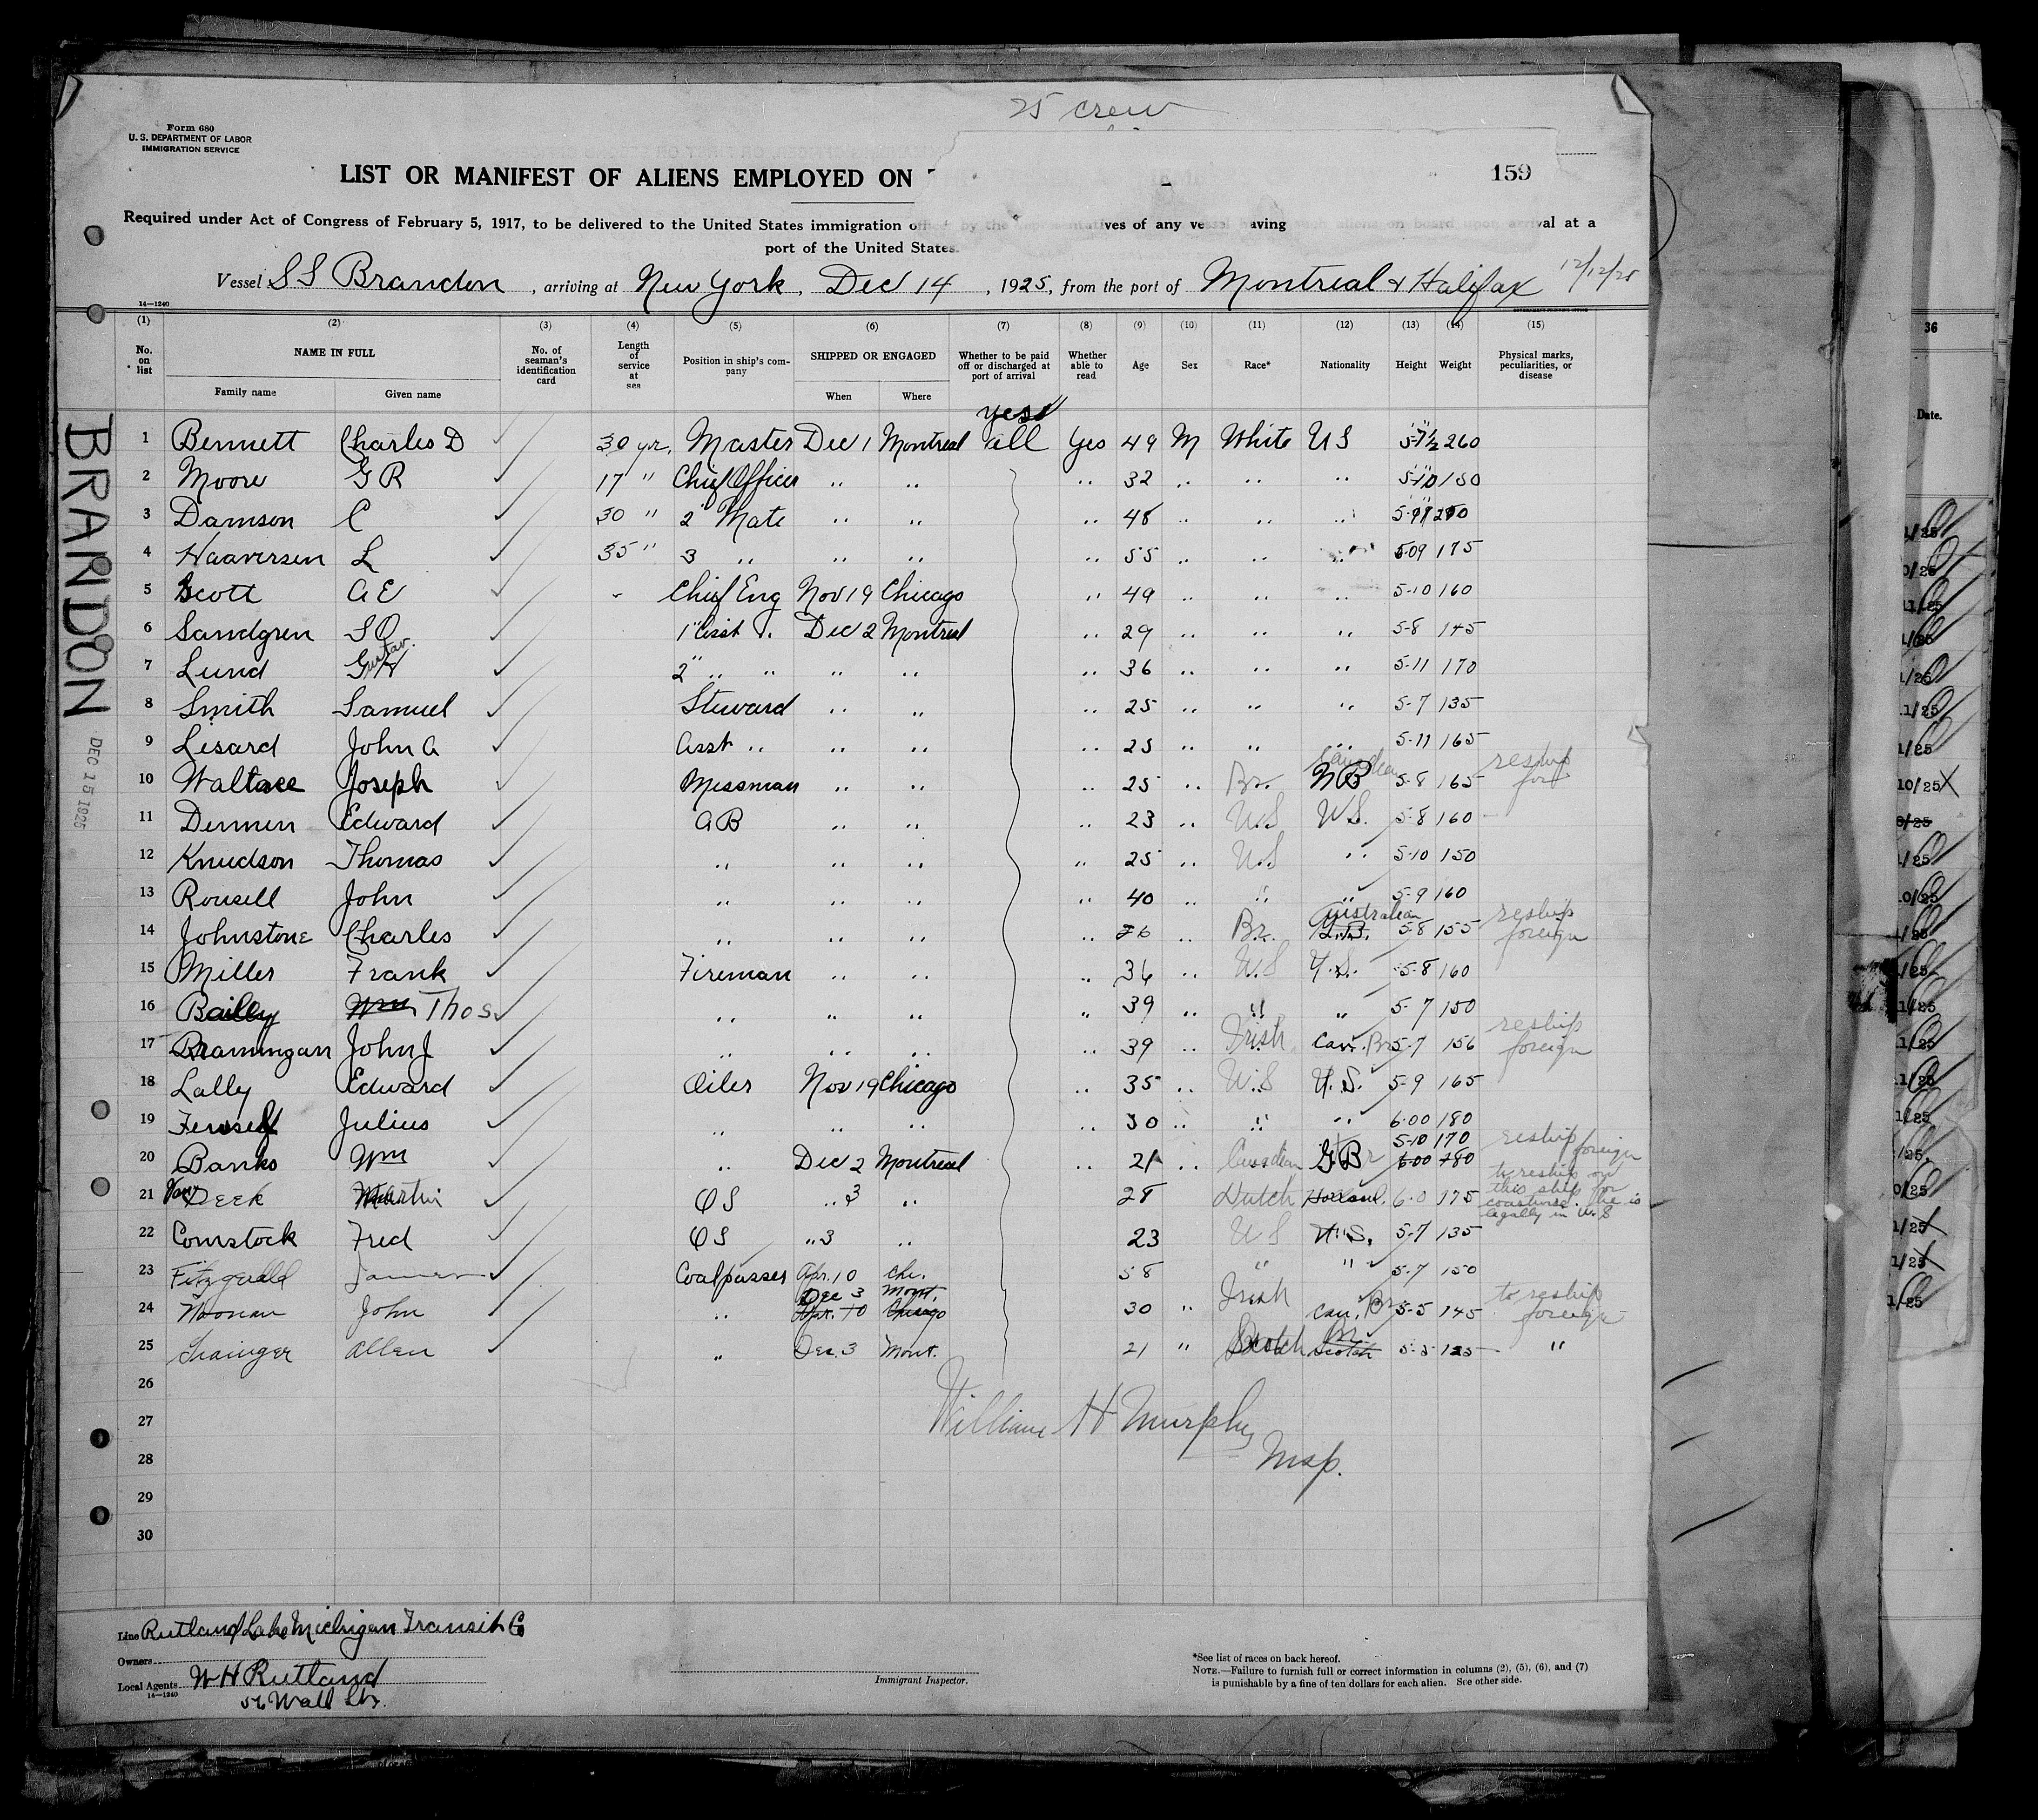 25 crew
Form 680
U. S. DEPARTMENT OF LABOR
IMMIGRATION SERVICE
159
LIST OR MANIFEST OF ALIENS EMPLOYED ON
Required under Act of Congress of February 5, 1917, to be delivered to the United States immigration by the representatives of any vessel having such aliens on board upon arrival at a
port of the United States.
Vessel SS Brandon, arriving at New York, Dec 14, 1925, from the port of Montreal & Halifax 12/12/25
14—1240
(1) (2) (3) (4) (5) (6) (7) (8) (9) (10) (11) (12) (13) (14) (15)
No. on list NAME IN FULL No. of seaman's identification card Length of service at sea Position in ship's company SHIPPED OR ENGAGED Whether to be paid off or discharged at port of arrival Whether able to read Age Sex Race* Nationality Height Weight Physical marks, peculiarities, or disease
Family name Given name When Where
yes
1 Bennett Charles D 30 yr. Master Dec 1 Montreal all Yes 49 M White US 5-7½ 260
2 Moore G R 17 " Chief Officer " " " 32 " " " 5-10 180
3 Damson C 30 " 2 Mate " " " 48 " " " 5-9
4 Haaversen L 35 " 3 " " " " 55 " " " 5-09 175
5 Scott A E - Chief Eng Nov 19 Chicago " 49 " " " 5-10 160
6 Sandgren S O 1" Asst " Dec 2 Montreal " 29 " " " 5-8 145
7 Lund Gustav 2" " " " " " 36 " " " 5-11 170
8 Smith Samuel Steward " " " 25 " " " 5-7 135
9 Lesard John A Asst " " " " 23 " " " 5-11 165
10 Wallace Joseph Messman " " " 25 " Br. Canadian NB 5-8 165 reship for
11 Dermen Edward AB " " " 23 " U.S U.S. 5-8 160
12 Knudson Thomas " " " " 25 " U.S " 5-10 150
13 Rousell John " " " " 40 " " " 5-9 160
14 Johnstone Charles " " " " 26 " Br. Australian G.B. 5-8 155 reship foreign
15 Miller Frank Fireman " " " 36 " U.S U.S. 5-8 160
16 Bailey Wm Thos " " " " 39 " " " 5-7 150
17 Branningan John J " " " " 39 " Irish Can. Br 5-7 156 reship foreign
18 Lally Edward Oiler Nov 19 Chicago " 35 " U.S U.S. 5-9 165
19 Julius " " " " 30 " " " 6-00 180
20 Banks Wm " Dec 2 Montreal " 21 " Canadian G Br 5-10 170 6-00 180 reship foreign
21 Van Deek Martin OS " 3 " 28 Dutch Holland. 6-0 175 to reship on this ship for coastwise. He is legally in U.S
22 Comstock Fred OS " 3 " 23 U S U.S. 5-7 135
23 Fitzgerald James Coalpasser Apr. 10 Chi. 58 " " 5-7 150
24 Noonan John " Dec 3 Mont. Apr. 10 Chicago 30 " Irish Can. Br 5-5 145 to reship foreign
25 Grainger Allen " Dec. 3 Mont. 21 " Scotch Br Scotch 5-5 125 "
26
27
28
29
30
William H Murphy
Insp.
BRANDON
DEC 15 1925
Line Rutland Lake Michigan Transit Co
Owners
Local Agents W H Rutland
14—1240
56 Wall St.
Immigrant Inspector.
*See list of races on back hereof.
NOTE.—Failure to furnish full or correct information in columns (2), (5), (6), and (7)
is punishable by a fine of ten dollars for each alien. See other side.
36
Date.